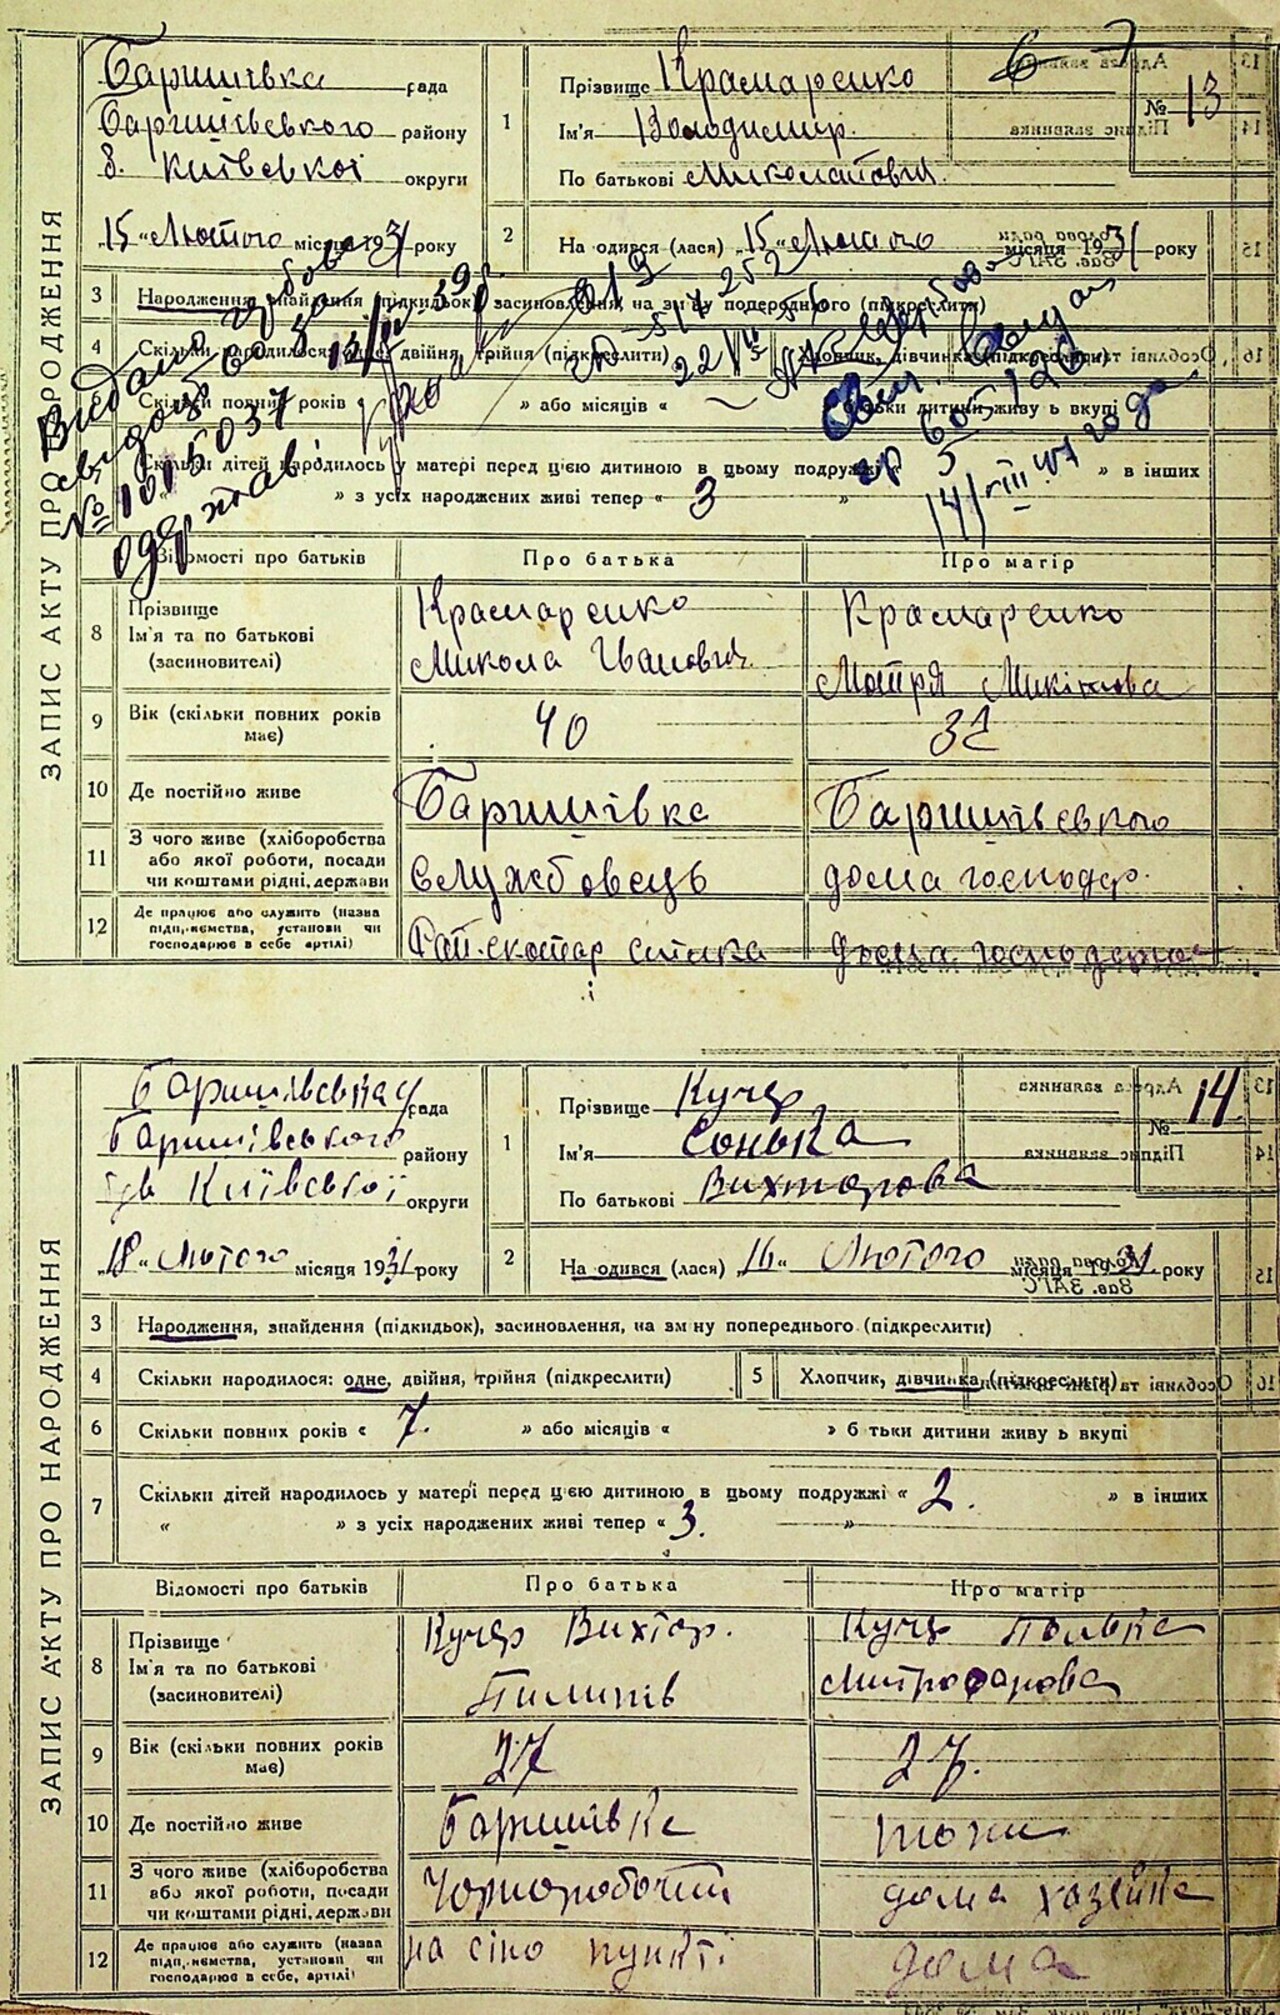 ЗАПИС АКТУ ПРО НАРОДЖЕННЯ
Баришівка рада
Баришівського району
б. Київської округи
„15“ Лютого місяця 1931 року
1
Прізвище Крамаренко
Ім'я Володимир
По батькові Миколайович
№ 13
2 На одився (лася) „15“ Лютого місяця 1931 року
3 Народження, знайдення (підкидьок), засиновлення, на зм ну попереднього (підкреслити)
4 Скільки народилося: двійня, трійня (підкреслити) Хлопчик, дівчинка (підкреслити)
Скільки повних років « » або місяців « батьки дитини живу ь вкупі
Скільки дітей народилось у матері перед цією дитиною в цьому подружжі « » в інших
» з усіх народжених живі тепер « 3 »
Видано
свідоцтво
№ 1015037
Відомості про батьків Про батька Про матір
8 Прізвище
Ім'я та по батькові
(засиновителі)
Крамаренко
Микола Іванович
Крамаренко
Мотря Микітова
9 Вік (скільки повних років має) 40
10 Де постійно живе Баришівка Баришівського
11 З чого живе (хліборобства
або якої роботи, посади
чи коштами рідні, держави
Службовець дома господар.
12 Де працює або служить (назва
підприємства, установи чи
господарює в себе артілі)
дома
ЗАПИС АКТУ ПРО НАРОДЖЕННЯ
Баришівська рада
Баришівського району
Київської округи
„18“ Лютого місяця 1931 року
1
Прізвище Кучер
Ім'я Сонька
По батькові Вихторова
№ 14
2 На одився (лася) „16“ Лютого місяця 1931 року
3 Народження, знайдення (підкидьок), засиновлення, на зм ну попереднього (підкреслити)
4 Скільки народилося: одне, двійня, трійня (підкреслити) 5 Хлопчик, дівчинка (підкреслити)
6 Скільки повних років « 7. » або місяців « » б тьки дитини живу ь вкупі
7 Скільки дітей народилось у матері перед цією дитиною в цьому подружжі « 2. » в інших
« » з усіх народжених живі тепер « 3. »
Відомості про батьків Про батька Про матір
8 Прізвище
Ім'я та по батькові
(засиновителі)
Кучер Вихтор.
Пилипів
Кучер Полька
Митрофанова
9 Вік (скільки повних років має) 27 27.
10 Де постійно живе Баришівка
11 З чого живе (хліборобства
або якої роботи, посади
чи коштами рідні, держави
Чорноробочий дома хазейка
12 Де працює або служить (назва
підприємства, установи чи
господарює в себе, артілі)
на сіно пункті дома